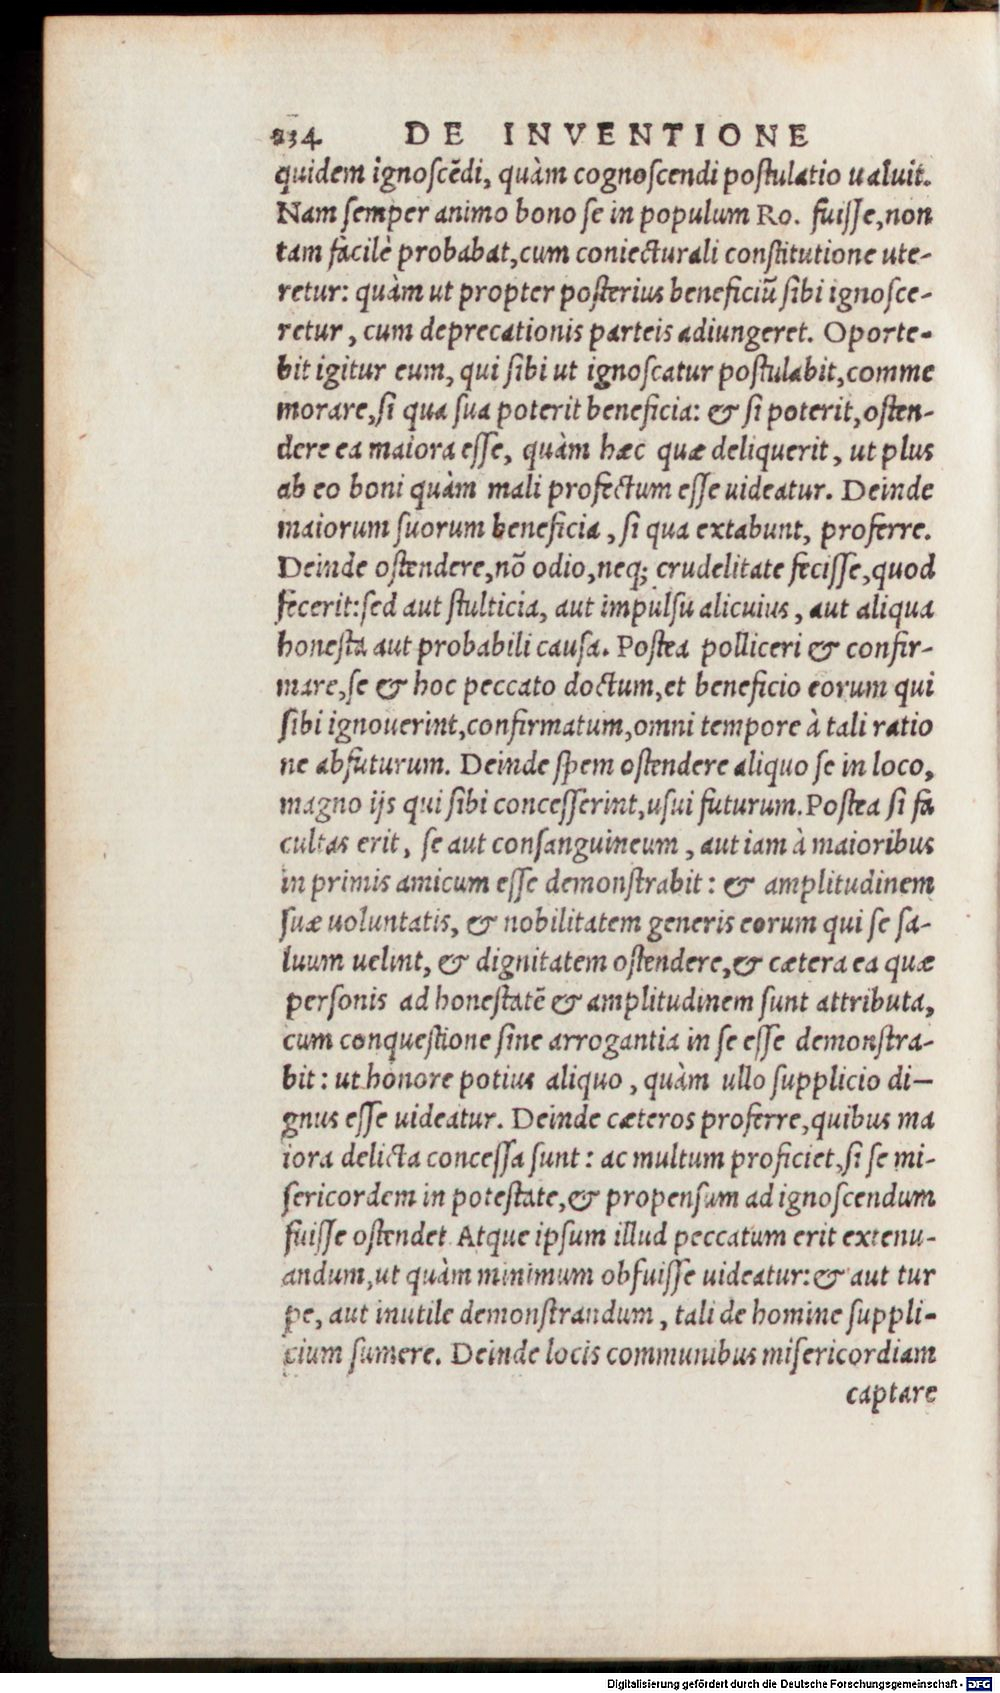 234 DE INVENTIONE
quidem ignoscēdi, quàm cognoscendi postulatio ualuit.
Nam semper animo bono se in populum Ro. fuisse, non
tam facilè probabat, cum coniecturali constitutione ute-
retur: quàm ut propter posterius beneficiū sibi ignosce-
retur, cum deprecationis parteis adiungeret. Oporte-
bit igitur eum, qui sibi ut ignoscatur postulabit, comme
morare, si qua sua poterit beneficia: & si poterit, osten-
dere ea maiora esse, quàm hæc quæ deliquerit, ut plus
ab eo boni quàm mali profectum esse uideatur. Deinde
maiorum suorum beneficia, si qua extabunt, proferre.
Deinde ostendere, nō odio, neq; crudelitate fecisse, quod
fecerit: sed aut stulticia, aut impulsu alicuius, aut aliqua
honesta aut probabili causa. Postea polliceri & confir-
mare, se & hoc peccato doctum, et beneficio eorum qui
sibi ignouerint, confirmatum, omni tempore à tali ratio
ne abfuturum. Deinde spem ostendere aliquo se in loco,
magno ijs qui sibi concesserint, usui futurum. Postea si fa
cultas erit, se aut consanguineum, aut iam à maioribus
in primis amicum esse demonstrabit: & amplitudinem
suæ uoluntatis, & nobilitatem generis eorum qui se sa-
luum uelint, & dignitatem ostendere, & cætera ea quæ
personis ad honestatē & amplitudinem sunt attributa,
cum conquestione sine arrogantia in se esse demonstra-
bit: ut honore potius aliquo, quàm ullo supplicio di-
gnus esse uideatur. Deinde cæteros proferre, quibus ma
iora delicta concessa sunt: ac multum proficiet, si se mi-
sericordem in potestate, & propensum ad ignoscendum
fuisse ostendet. Atque ipsum illud peccatum erit extenu-
andum, ut quàm minimum obfuisse uideatur: & aut tur
pe, aut inutile demonstrandum, tali de homine suppli-
cium sumere. Deinde locis communibus misericordiam
captare
Digitalisierung gefördert durch die Deutsche Forschungsgemeinschaft - DFG